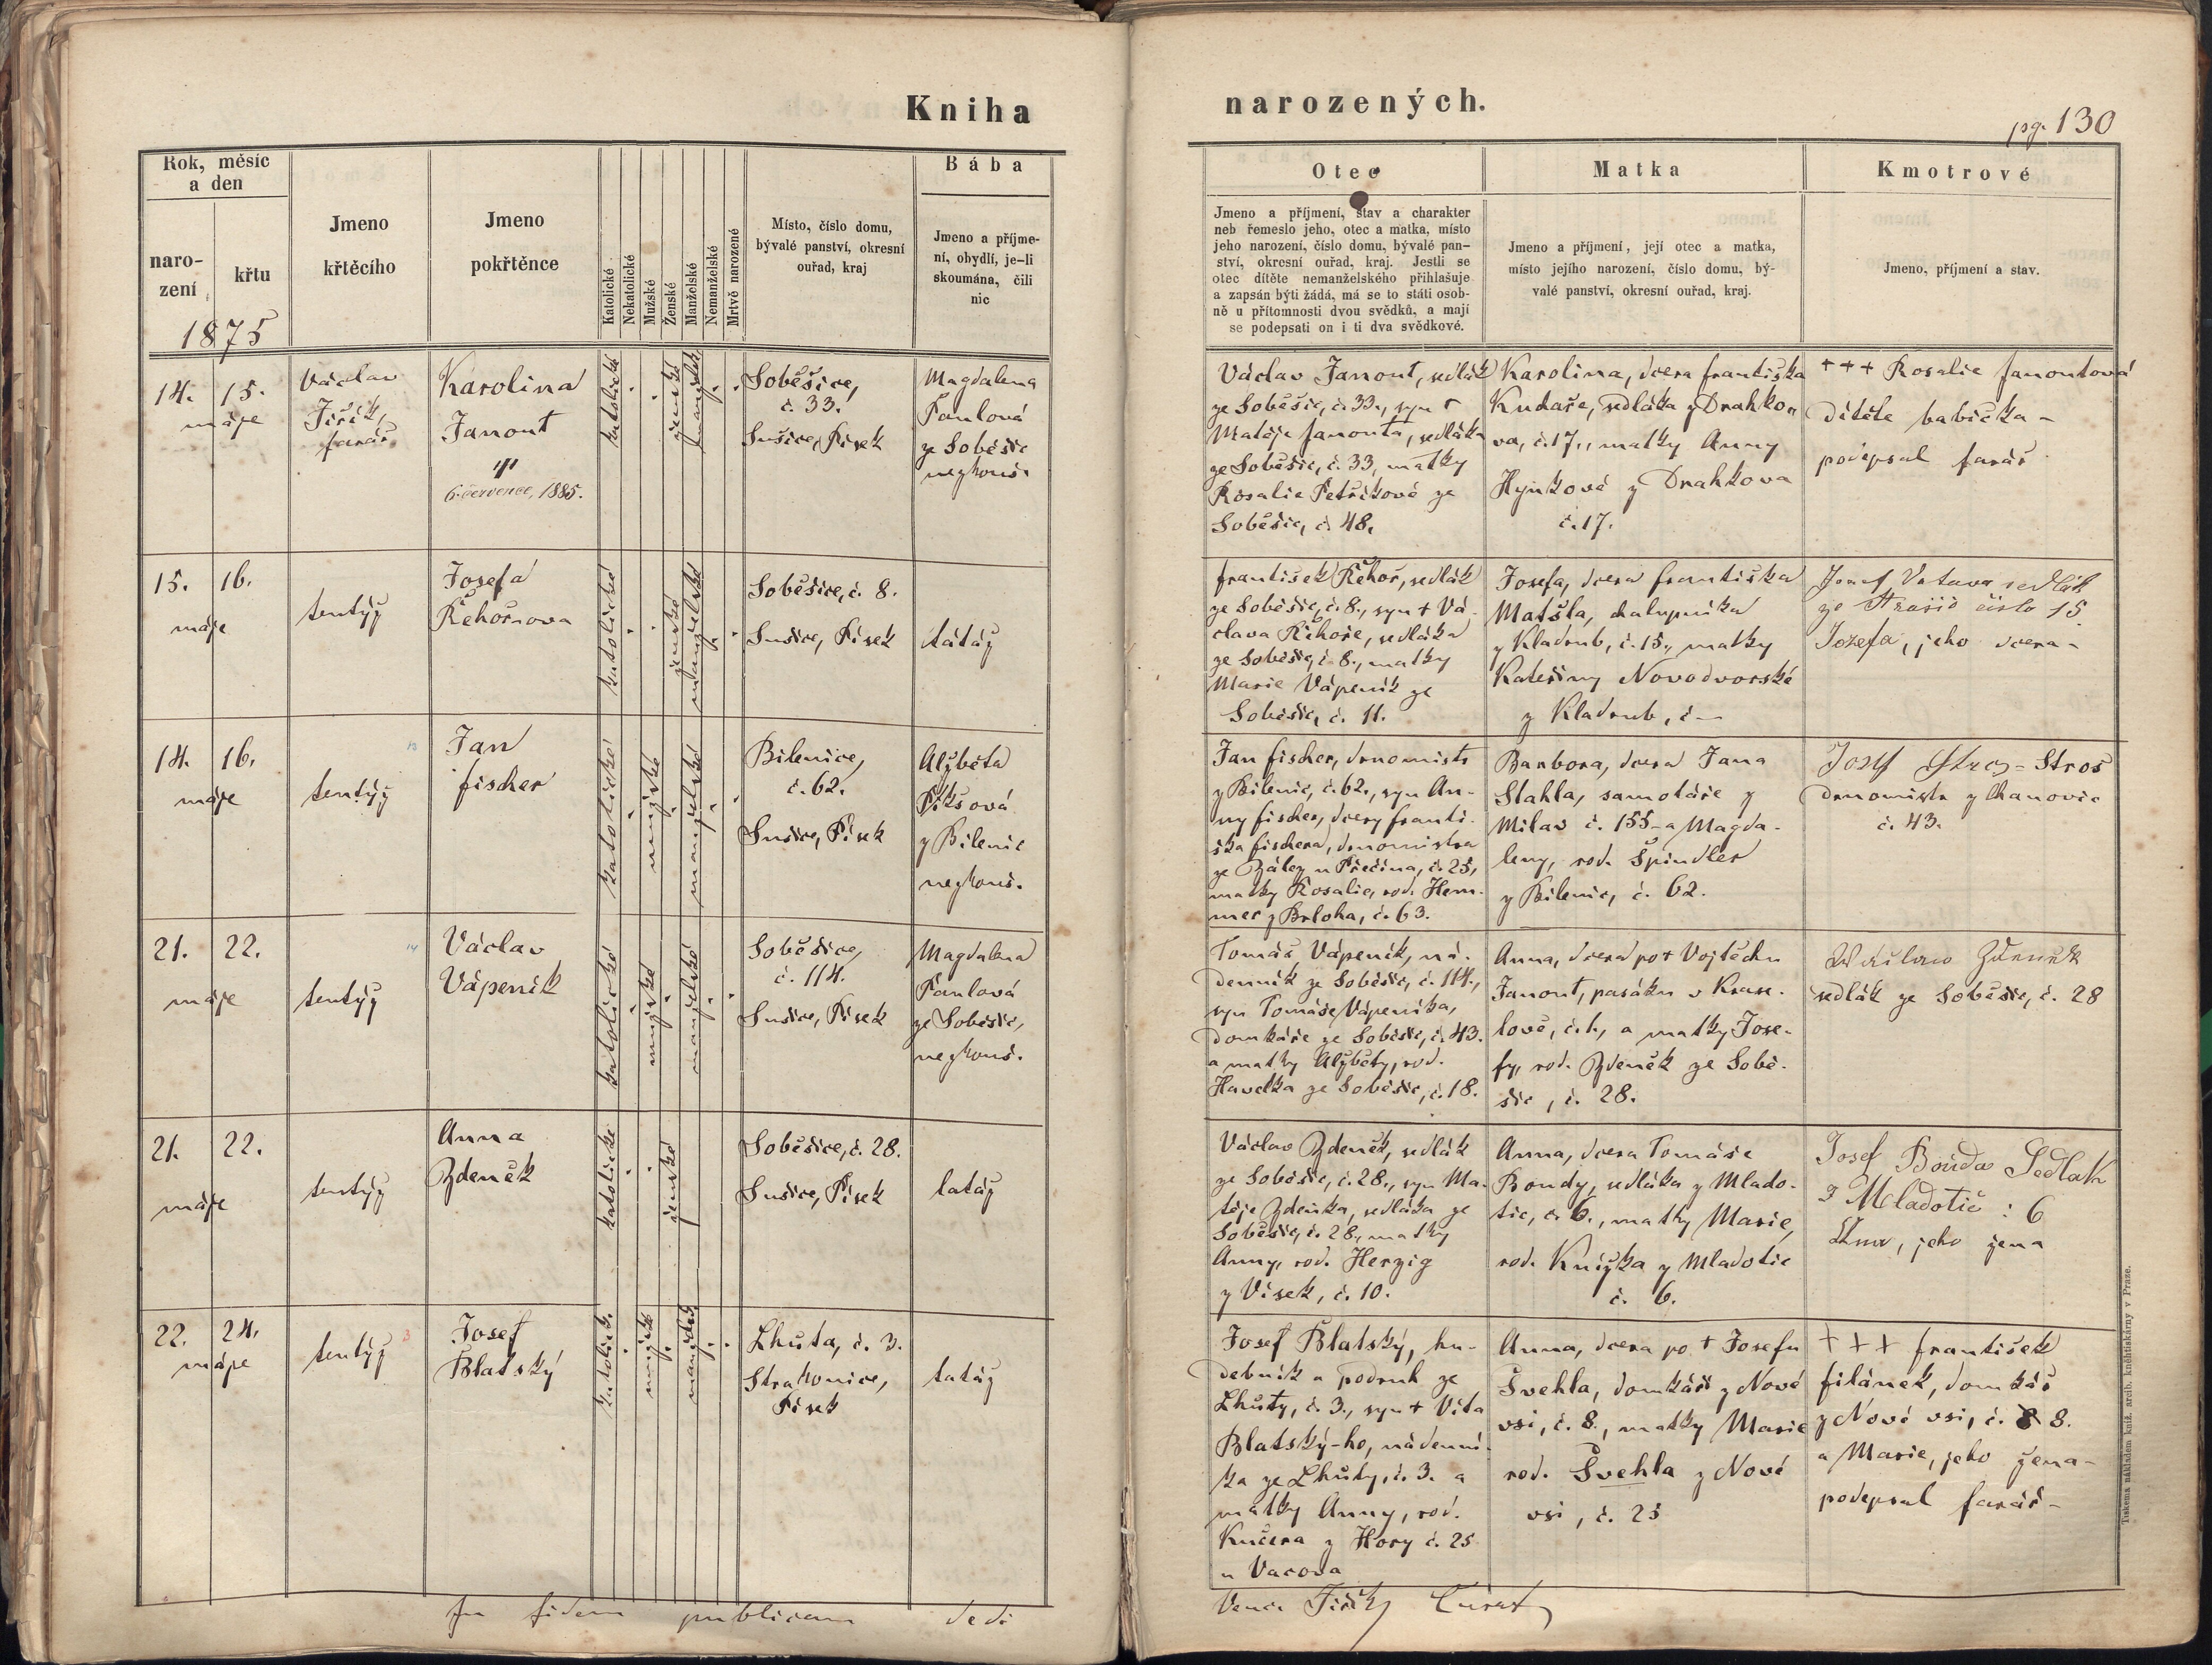 Kniha
narozených.
pg. 130
Rok, měsíc
a den
naro-
zení
křtu
1875
Jmeno
křtěcího
Jmeno
pokřtěnce
Katolické
Nekatolické
Mužské
Ženské
Manželské
Nemanželské
Mrtvě narozené
Místo, číslo domu,
bývalé panství, okresní
ouřad, kraj
Bába
Jmeno a příjme-
ní, obydlí, je-li
skoumána, čili
nic
Otec
Jmeno a příjmení, stav a charakter
neb řemeslo jeho, otec a matka, místo
jeho narození, číslo domu, bývalé pan-
ství, okresní ouřad, kraj. Jestli se
otec dítěte nemanželského přihlašuje
a zapsán býti žádá, má se to státi osob-
ně u přítomnosti dvou svědků, a mají
se podepsati on i ti dva svědkové.
Matka
Jmeno a příjmení, její otec a matka,
místo jejího narození, číslo domu, bý-
valé panství, okresní ouřad, kraj.
Kmotrové
Jmeno, příjmení a stav.
14. 15.
máje
Václav
Jiřík,
farář
Karolina
Janout
6. července, 1885.
katolické
ženské
manželské
Soběšice,
č. 33.
Sušice, Písek
Magdalena
Pavlová
ze Soběšic
nezkouš.
Václav Janout, sedlák
ze Soběšic, č. 33., syn +
Matěje Janouta, sedláka
ze Soběšic, č. 33, matky
Rosalie Petříkové ze
Soběšic, č. 48.
Karolina, dcera Františka
Kudaře, sedláka z Drahko-
va, č. 17., matky Anny
Hynkové z Drahkova
č. 17.
+++ Rosalie Janoutová
dítěte babička -
podepsal farář
15. 16.
máje
tentýž
Josefa
Řehořova
katolické
ženské
manželské
Soběšice, č. 8.
Sušice, Písek
tatáž
František Řehoř, sedlák
ze Soběšic, č. 8., syn + Vá-
clava Řehoře, sedláka
ze Soběšic, č. 8., matky
Marie Vápeník ze
Soběšic, č. 11.
Josefa, dcera Františka
Matšla, chalupníka
z Kladrub, č. 15., matky
Kateřiny Novodvorské
z Kladrub, č -
Josef Votava sedlák
ze Strašic číslo 15
Jozefa, jeho dcera -
14. 16.
máje
tentýž
Jan
Fischer
katolické
mužské
manželské
Bilenice,
č. 62.
Sušice, Písek
Alžběta
Pikšová
z Bilenic
nezkouš.
Jan Fischer, drnomistr
z Bilenic, č. 62., syn An-
ny Fischer, dcery Franti-
ška Fischera, drnomistra
ze Zález u Přečína, č. 25,
matky Rosalie, rod. Hem-
mer z Brloha, č. 63.
Barbora, dcera Jana
Stahla, samotáře z
Milav č. 155 - a Magda-
leny, rod. Špindler
z Bilenic, č. 62.
Josef Stros = Stros
drnomistr z Chanovic
č. 43.
21. 22.
máje
tentýž
Václav
Vápeník
katolické
mužské
manželské
Soběšice,
č. 114.
Sušice, Písek
Magdalena
Pavlová
ze Soběšic,
nezkouš.
Tomáš Vápeník, ná-
denník ze Soběšic, č. 114.,
syn Tomáše Vápeníka,
domkáře ze Soběšic, č. 43.
a matky Alžběty, rod.
Havelka ze Soběšic, č. 18.
Anna, dcera po + Vojtěchu
Janout, pasáku v Krase-
lově, č. 1., a matky Jose-
fy, rod. Zdeněk ze Sobě-
šic, č. 28.
Wáclaw Zdeněk
sedlák ze Soběšic, č. 28
21. 22.
máje
tentýž
Anna
Zdeněk
katolické
ženské
Soběšice, č. 28.
Sušice, Písek
tatáž
Václav Zdeněk, sedlák
ze Soběšic, č. 28., syn Ma-
těje Zdeňka, sedláka ze
Soběšic, č. 28., matky
Anny, rod. Herzig
z Vísek, č. 10.
Anna, dcera Tomáše
Boudy, sedláka z Mlado-
tic, č. 6., matky Marie,
rod. Knížka z Mladotic
č. 6.
Josef Bouda Sedlak
z Mladotic : 6
Anna, jeho žena
22. 24.
máje
tentýž
3
Josef
Blatský
katolick.
mužské
manžels.
Lhuta, č. 3.
Strakonice,
Písek
tatáž
Josef Blatský, hu-
debník a podruh ze
Lhůty, č. 3., syn + Víta
Blatský-ho, nádenní-
ka ze Lhůty, č. 3. a
matky Anny, rod.
Kučera z Hory č. 25
u Vacova
Anna, dcera po + Josefu
Švehla, domkáři z Nové
vsi, č. 8., matky Marie
rod. Švehla z Nové
vsi, č. 25
+++ František
Filánek, domkář
z Nové vsi, č. 8.
a Marie, jeho žena -
podepsal farář -
In fidem publicam dedi
Venc. Jiřík, Curat
Tiskema nákladem kníž. arcib. kněhtiskárny v Praze.